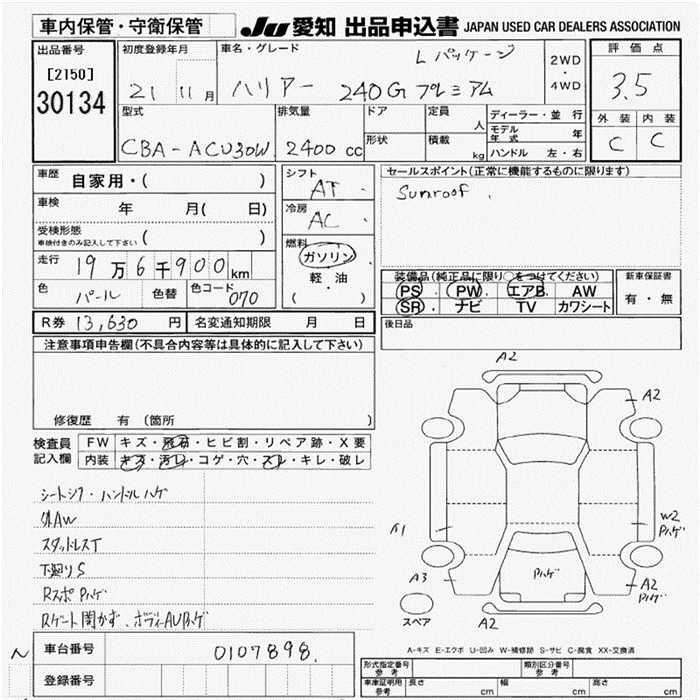 車内保管・守衛保管
JU 愛知 出品申込書 JAPAN USED CAR DEALERS ASSOCIATION
出品番号
[2150]
30134
初度登録年月
21 11月
車名・グレード
Lパッケージ
ハリアー 240G プレミアム
2WD
・
4WD
評価点
3.5
外装 内装
C C
型式
CBA-ACU30W
排気量
2400cc
ドア
形状
定員
人
積載
kg
ディーラー・並行
モデル年式 年
ハンドル 左・右
車歴
自家用・( )
車検
年 月( 日)
受検形態
車検付きのみ記入して下さい ( )
走行
19万6千900km
色
パール
色替
色コード
070
シフト
AT
冷房
AC
燃料
ガソリン
軽・油
( )
セールスポイント(正常に機能するものに限ります)
Sunroof
装備品(純正品に限り○をつけてください)
PS PW エアB AW
SR ナビ TV カワシート
新車保証書
有・無
R券 13,630円
名変通知期限 月 日
後日品
注意事項申告欄(不具合内容等は具体的に記入して下さい)
修復歴 有 (箇所 )
検査員記入欄
FW キズ・飛石・ヒビ割・リペア跡・X要
内装 キズ・汚レ・コゲ・穴・スレ・キレ・破レ
シートシワ・ハンドルハゲ
外AW
スタッドレスT
下廻りS
RスポPハゲ
Rゲート開かず、ボディーAUPハゲ
A2
A2
A1
W2
Pハゲ
A3
Pハゲ
A2
Pハゲ
A2
スペア
A-キズ E-エクボ U-凹み W-補修跡 S-サビ C-腐食 XX-交換済
車台番号
0107898
登録番号
型式指定番号
参考
類別区分番号
参考
車庫証明用
参考
長さ cm
幅 cm
高さ cm